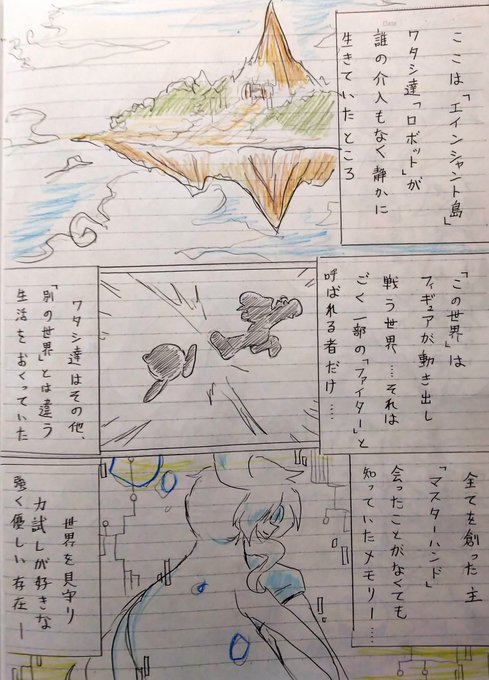 ここは「エインシャント島」
ワタシ達「ロボット」が
誰の介入もなく静かに
生きていたところ
「この世界」は
フィギュアが動き出し
戦う世界……それは
ごく一部の「ファイター」と
呼ばれる者だけ……
ワタシ達はその他、
「別の世界」とは違う
生活をおくっていた
全てを創った主
「マスターハンド」
会ったことがなくても
知っていたメモリー……
世界を見守り
力試しが好きな
強く優しい存在ー